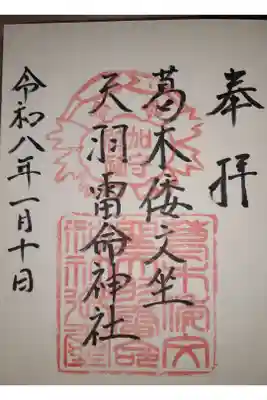 奉拝
葛木倭文坐
天羽雷命神社
令和八年一月十日
加守